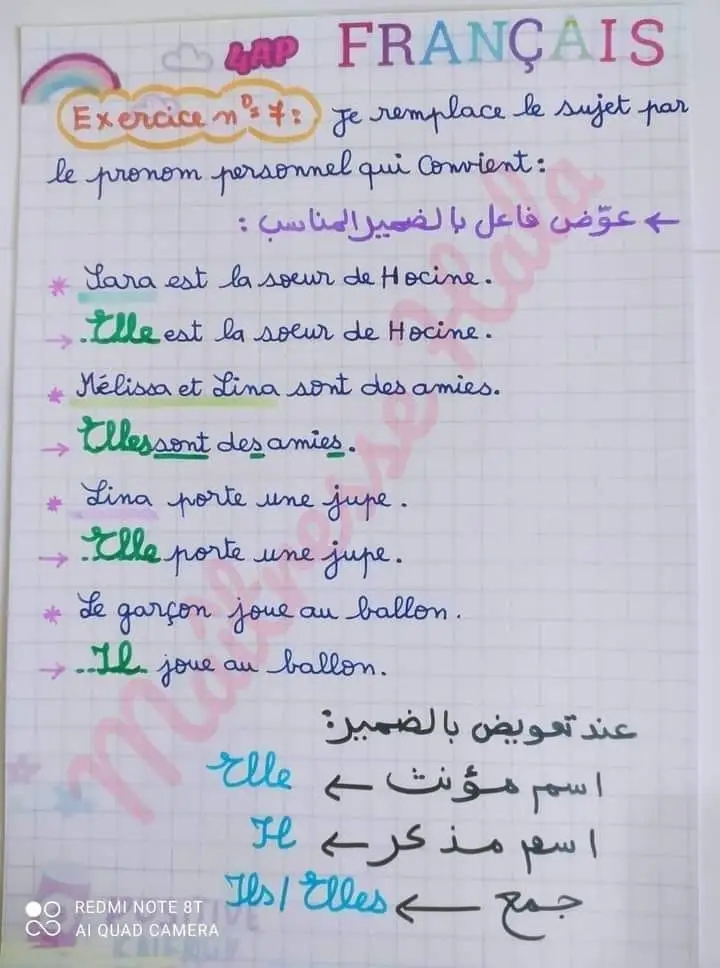 4AP FRANÇAIS
Exercice n°= 7: Je remplace le sujet par
le pronom personnel qui convient:
← عوّض فاعل بالضمير المناسب :
* Sara est la soeur de Hocine.
→ .Elle est la soeur de Hocine.
* Mélissa et Lina sont des amies.
→ Elles sont des amies.
* Lina porte une jupe.
→ .Elle porte une jupe.
* Le garçon joue au ballon.
→ ..Il. joue au ballon.
عند تعويض بالضمير:
اسم مؤنث ← Elle
اسم مذكر ← Il
جمع ← Ils / Elles
Maîtresse Hala
REDMI NOTE 8T
AI QUAD CAMERA